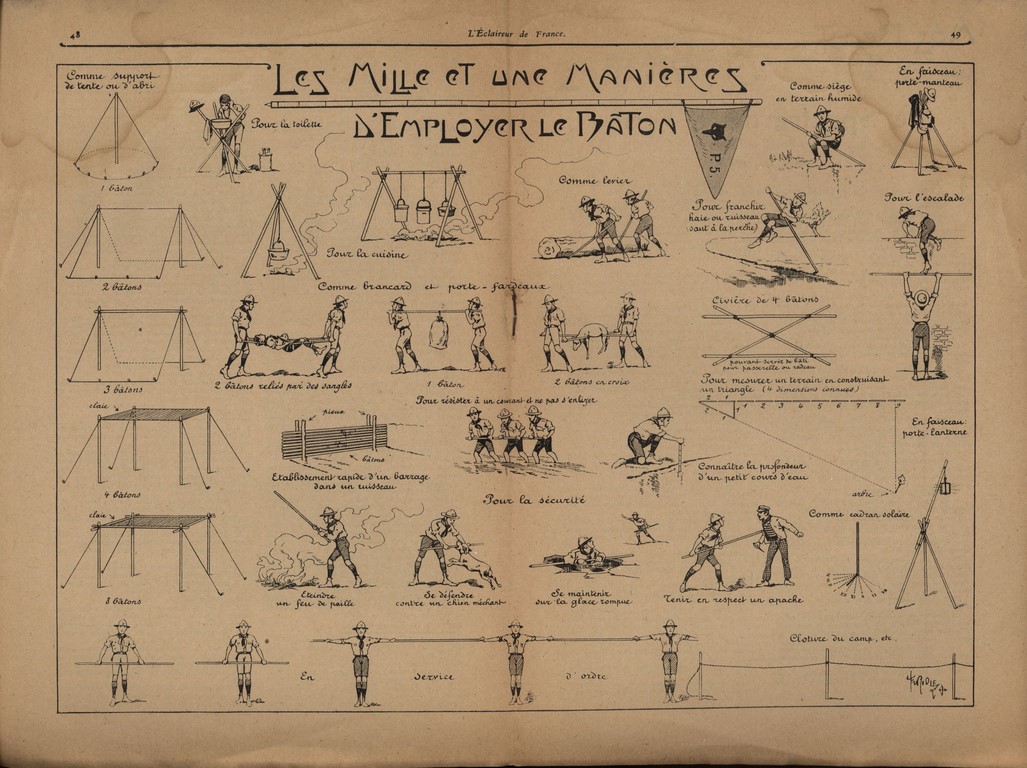 48
L'Éclaireur de France.
49
LES MILLE ET UNE MANIÈRES
D'EMPLOYER LE BÂTON
Comme support
de tente ou d'abri
1 bâton
Pour la toilette
P.5.
Comme siège
en terrain humide
En faisceau:
porte-manteau
2 bâtons
Pour la cuisine
Comme levier
Pour franchir
haie ou ruisseau
(saut à la perche)
Pour l'escalade
Comme brancard et porte-fardeaux
3 bâtons
2 bâtons reliés par des sangles
1 bâton
2 bâtons en croix
Civière de 4 bâtons
pouvant servir de bâti
pour passerelle ou radeau
Pour mesurer un terrain en construisant
un triangle (4 dimensions connues)
2 1
1 2 3 4 5 6 7 8 9
1
arbre
claie
4 bâtons
pieux
bâtons
Etablissement rapide d'un barrage
dans un ruisseau
Pour résister à un courant et ne pas s'enliser
Connaître la profondeur
d'un petit cours d'eau
En faisceau
porte-lanterne
Pour la sécurité
claie
8 bâtons
Eteindre
un feu de paille
Se défendre
contre un chien méchant
Se maintenir
sur la glace rompue
Tenir en respect un apache
Comme cadran solaire
En service d'ordre
Cloture du camp, etc.